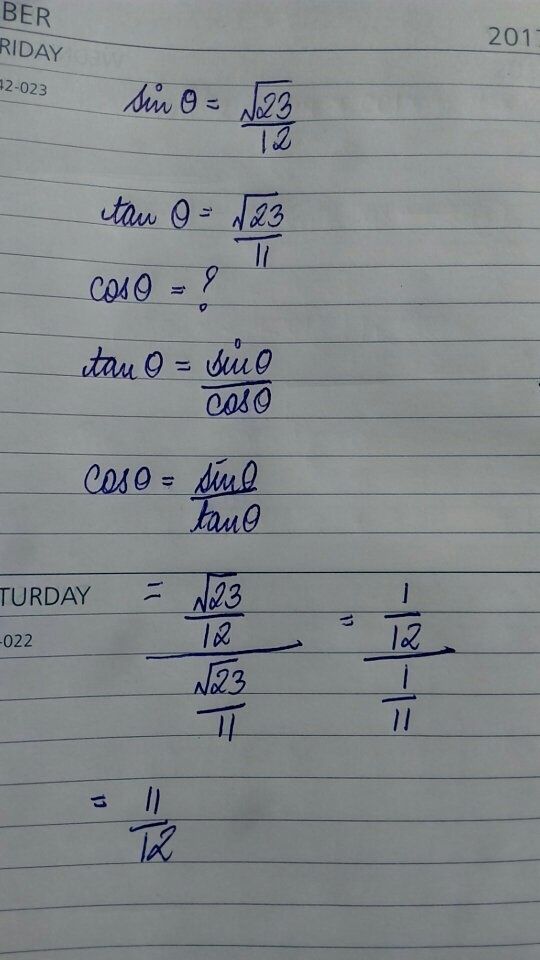 BER
2017
RIDAY
42-023
sin θ = √23/12
tan θ = √23/11
cosθ = ?
tan θ = sinθ/cosθ
cosθ = sinθ/tanθ
TURDAY
-022
= (√23/12)/(√23/11) = (1/12)/(1/11)
= 11/12